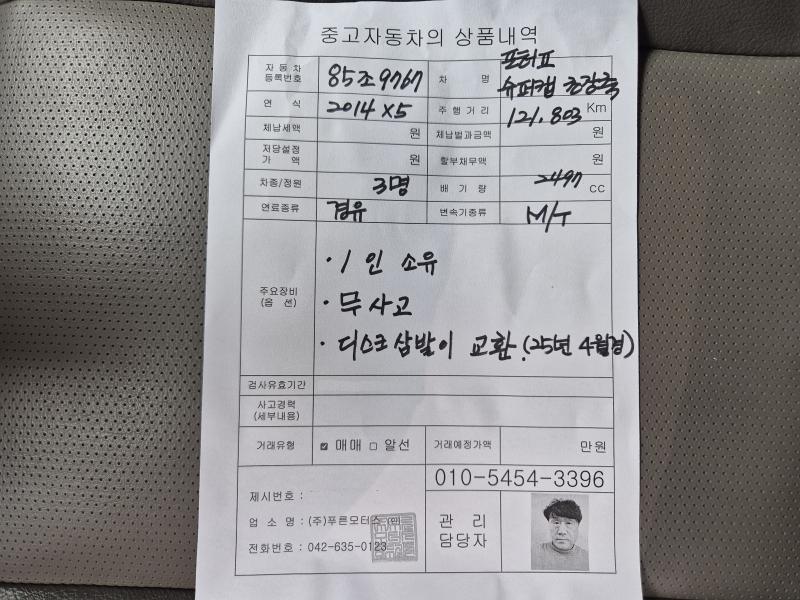 중고자동차의 상품내역
자동차 등록번호 85조9767 차 명 포터Ⅱ 슈퍼캡 초장축
연 식 2014 X 5 주행거리 121.803 Km
체납세액 원 체납벌과금액 원
저당설정 가 액 원 할부채무액 원
차종/정원 3명 배 기 량 2497 CC
연료종류 경유 변속기종류 M/T
주요장비 (옵 션)
· 1인 소유
· 무사고
· 디스크삼발이 교환.(25년 4월경)
검사유효기간
사고경력 (세부내용)
거래유형 ☑ 매매 □ 알선 거래예정가액 만원
010-5454-3396
제시번호 :
업 소 명 : (주)푸른모터스 (인)
전화번호 : 042-635-0123
관 리 담당자